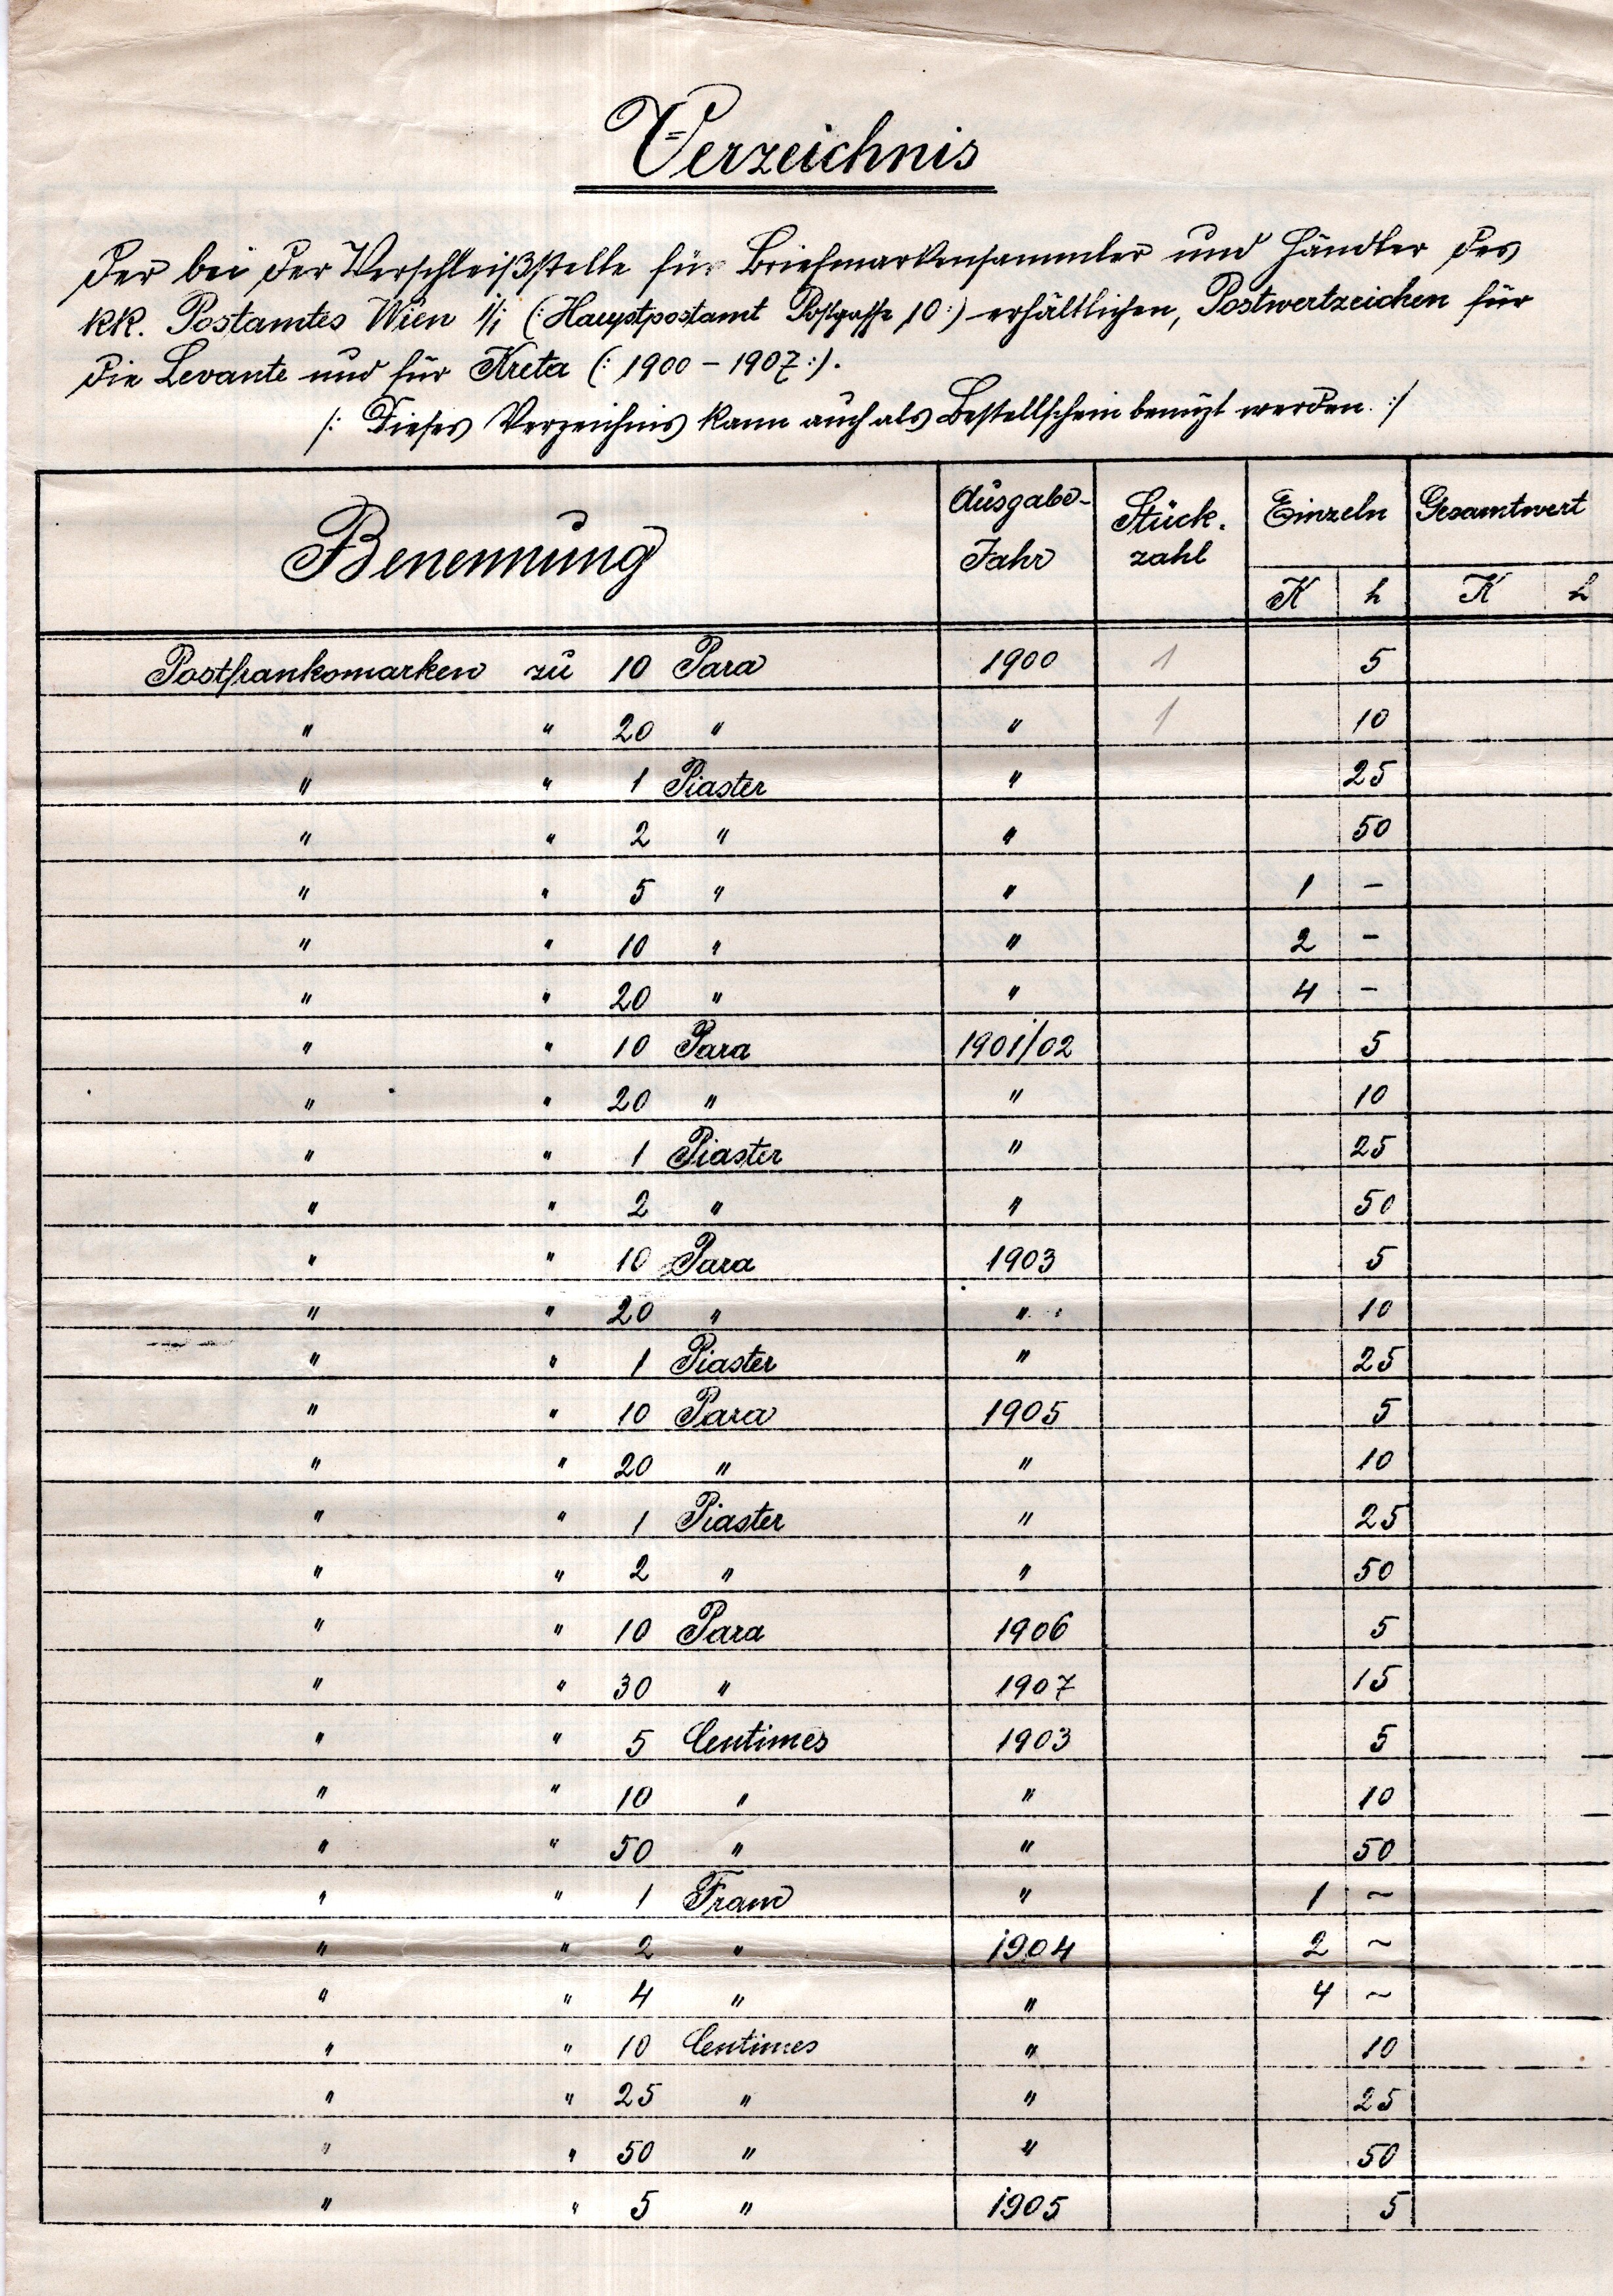 Verzeichnis
der bei der Verschleißstelle für Briefmarkensammler und Händler des
kk. Postamtes Wien 1/1 (: Hauptpostamt Postgasse 10 :) erhältlichen, Postwertzeichen für
die Levante und für Kreta (: 1900 – 1907 :).
/: Dieses Verzeichnis kann auch als Bestellschein benüzt werden. :/
Benennung Ausgabe- Jahr Stück- zahl Einzeln Gesamtwert
K h K h
Postfrankomarken zu 10 Para 1900 1 5
" " 20 " " 1 10
" " 1 Piaster " 25
" " 2 " " 50
" " 5 " " 1 –
" " 10 " " 2 –
" " 20 " " 4 –
" " 10 Para 1901/02 5
" " 20 " " 10
" " 1 Piaster " 25
" " 2 " " 50
" " 10 Para 1903 5
" " 20 " " 10
" " 1 Piaster " 25
" " 10 Para 1905 5
" " 20 " " 10
" " 1 Piaster " 25
" " 2 " " 50
" " 10 Para 1906 5
" " 30 " 1907 15
" " 5 Centimes 1903 5
" " 10 " " 10
" " 50 " " 50
" " 1 Franc " 1 ~
" " 2 " 1904 2 ~
" " 4 " " 4 ~
" " 10 Centimes " 10
" " 25 " " 25
" " 50 " " 50
" " 5 " 1905 5